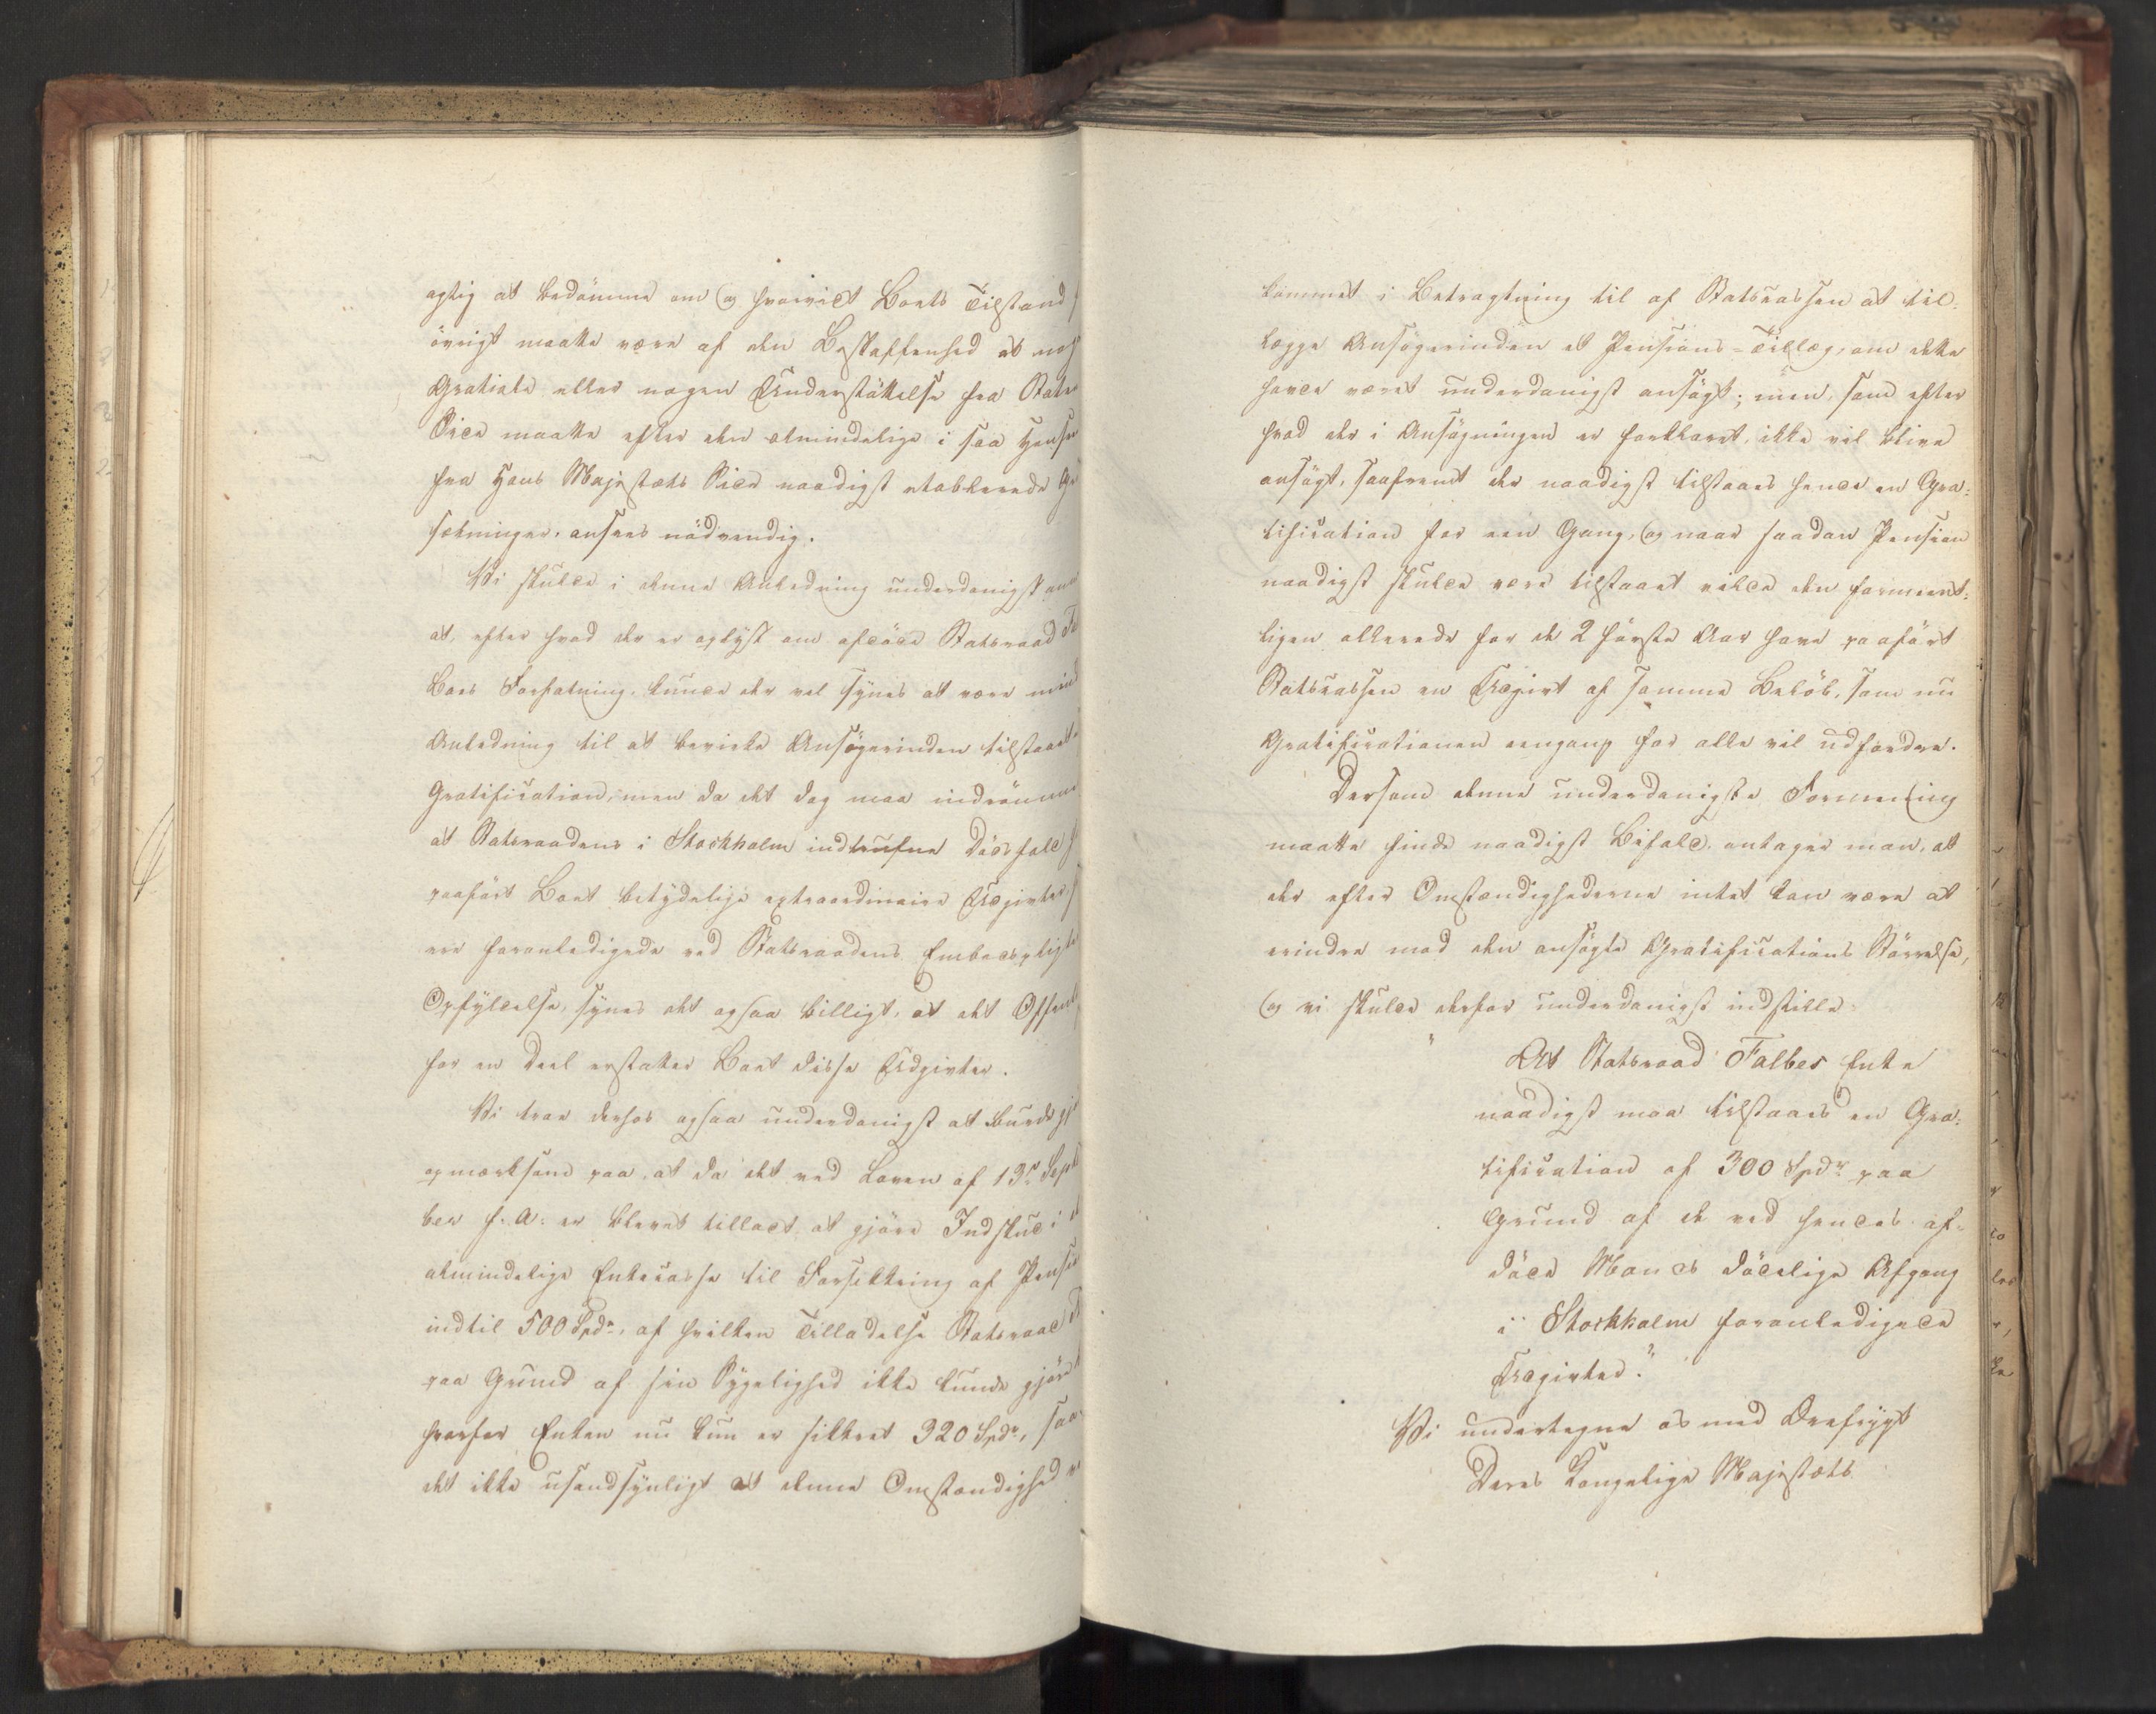 agtig at bedömme om og hvorvidt Boets Tilstand
övrigt maatte være af den Beskaffenhed at
Gratiale eller nogen Understöttelse fra Statens
Side maatte efter den almindelige i saa Henseende
fra Hans Majestæts Side naadigst etablerede
sætninger, ansees nödvendig.
Vi skulde i denne Anledning underdanigst
at, efter hvad der er oplyst om afdöde Statsraad
Boes Forfatning, kunde der vel synes at være mindre
Anledning til at bevirke Ansögerinden tilstaaet
Gratification, men da det dog maa indrömmes
at Statsraadens i Stockholm indtrufne Dödsfald
paafört Boet betydelige extraordinaire Udgivter
ere foranledigede ved Statsraadens Embedspligts
Opfyldelse, synes det ogsaa billigt, at det Offentlige
for en Deel erstatter Boet disse Udgivter.
Vi troe derhos ogsaa underdanigst at burde
opmærksom paa, at da det ved Loven af 13de Septem
ber f. A. er blevet tilladt at gjöre Indskud i
almindelige Enkecasse til Forsikkring af Pension
indtil 500 Spdr, af hvilken Tilladelse Statsraad
paa Grund af sin Sygelighed ikke kunde gjöre
hvorfor Enken nu kun er sikkret 320 Spdr, saa
det ikke usandsynligt at denne Omstændighed
kommet i Betragtning til af Statscassen at til-
lægge Ansögerinden et Pensions-Tillæg, om dette
havde været underdanigst ansögt; men, som efter
hvad der i Ansögningen er forklaret, ikke vil blive
ansögt, saafremt der naadigst tilstaaes hende en Gra-
tification for een Gang, og naar saadan Pension
naadigst skulde være tilstaaet vilde den formeent-
ligen allerede for de 2 förste Aar have paafört
Statscassen en Udgivt af samme Belöb, som nu
Gratificationen eengang for alle vil udfordre.
Dersom denne underdanigste Formening
maatte finde naadigst Bifald, antager man, at
der efter Omstændighederne intet kan være at
erindre mod den ansögte Gratifications Störrelse,
og vi skulde derfor underdanigst indstille:
"At Statsraad Falbes Enke
naadigst maa tilstaaes en Gra-
tification af 300 Spdr paa
Grund af de ved hendes af-
döde Mands dödelige Afgang
i Stockholm foranledigede
Udgivter."
Vi undertegne os med Ærefrygt
Deres Kongelige Majestæts